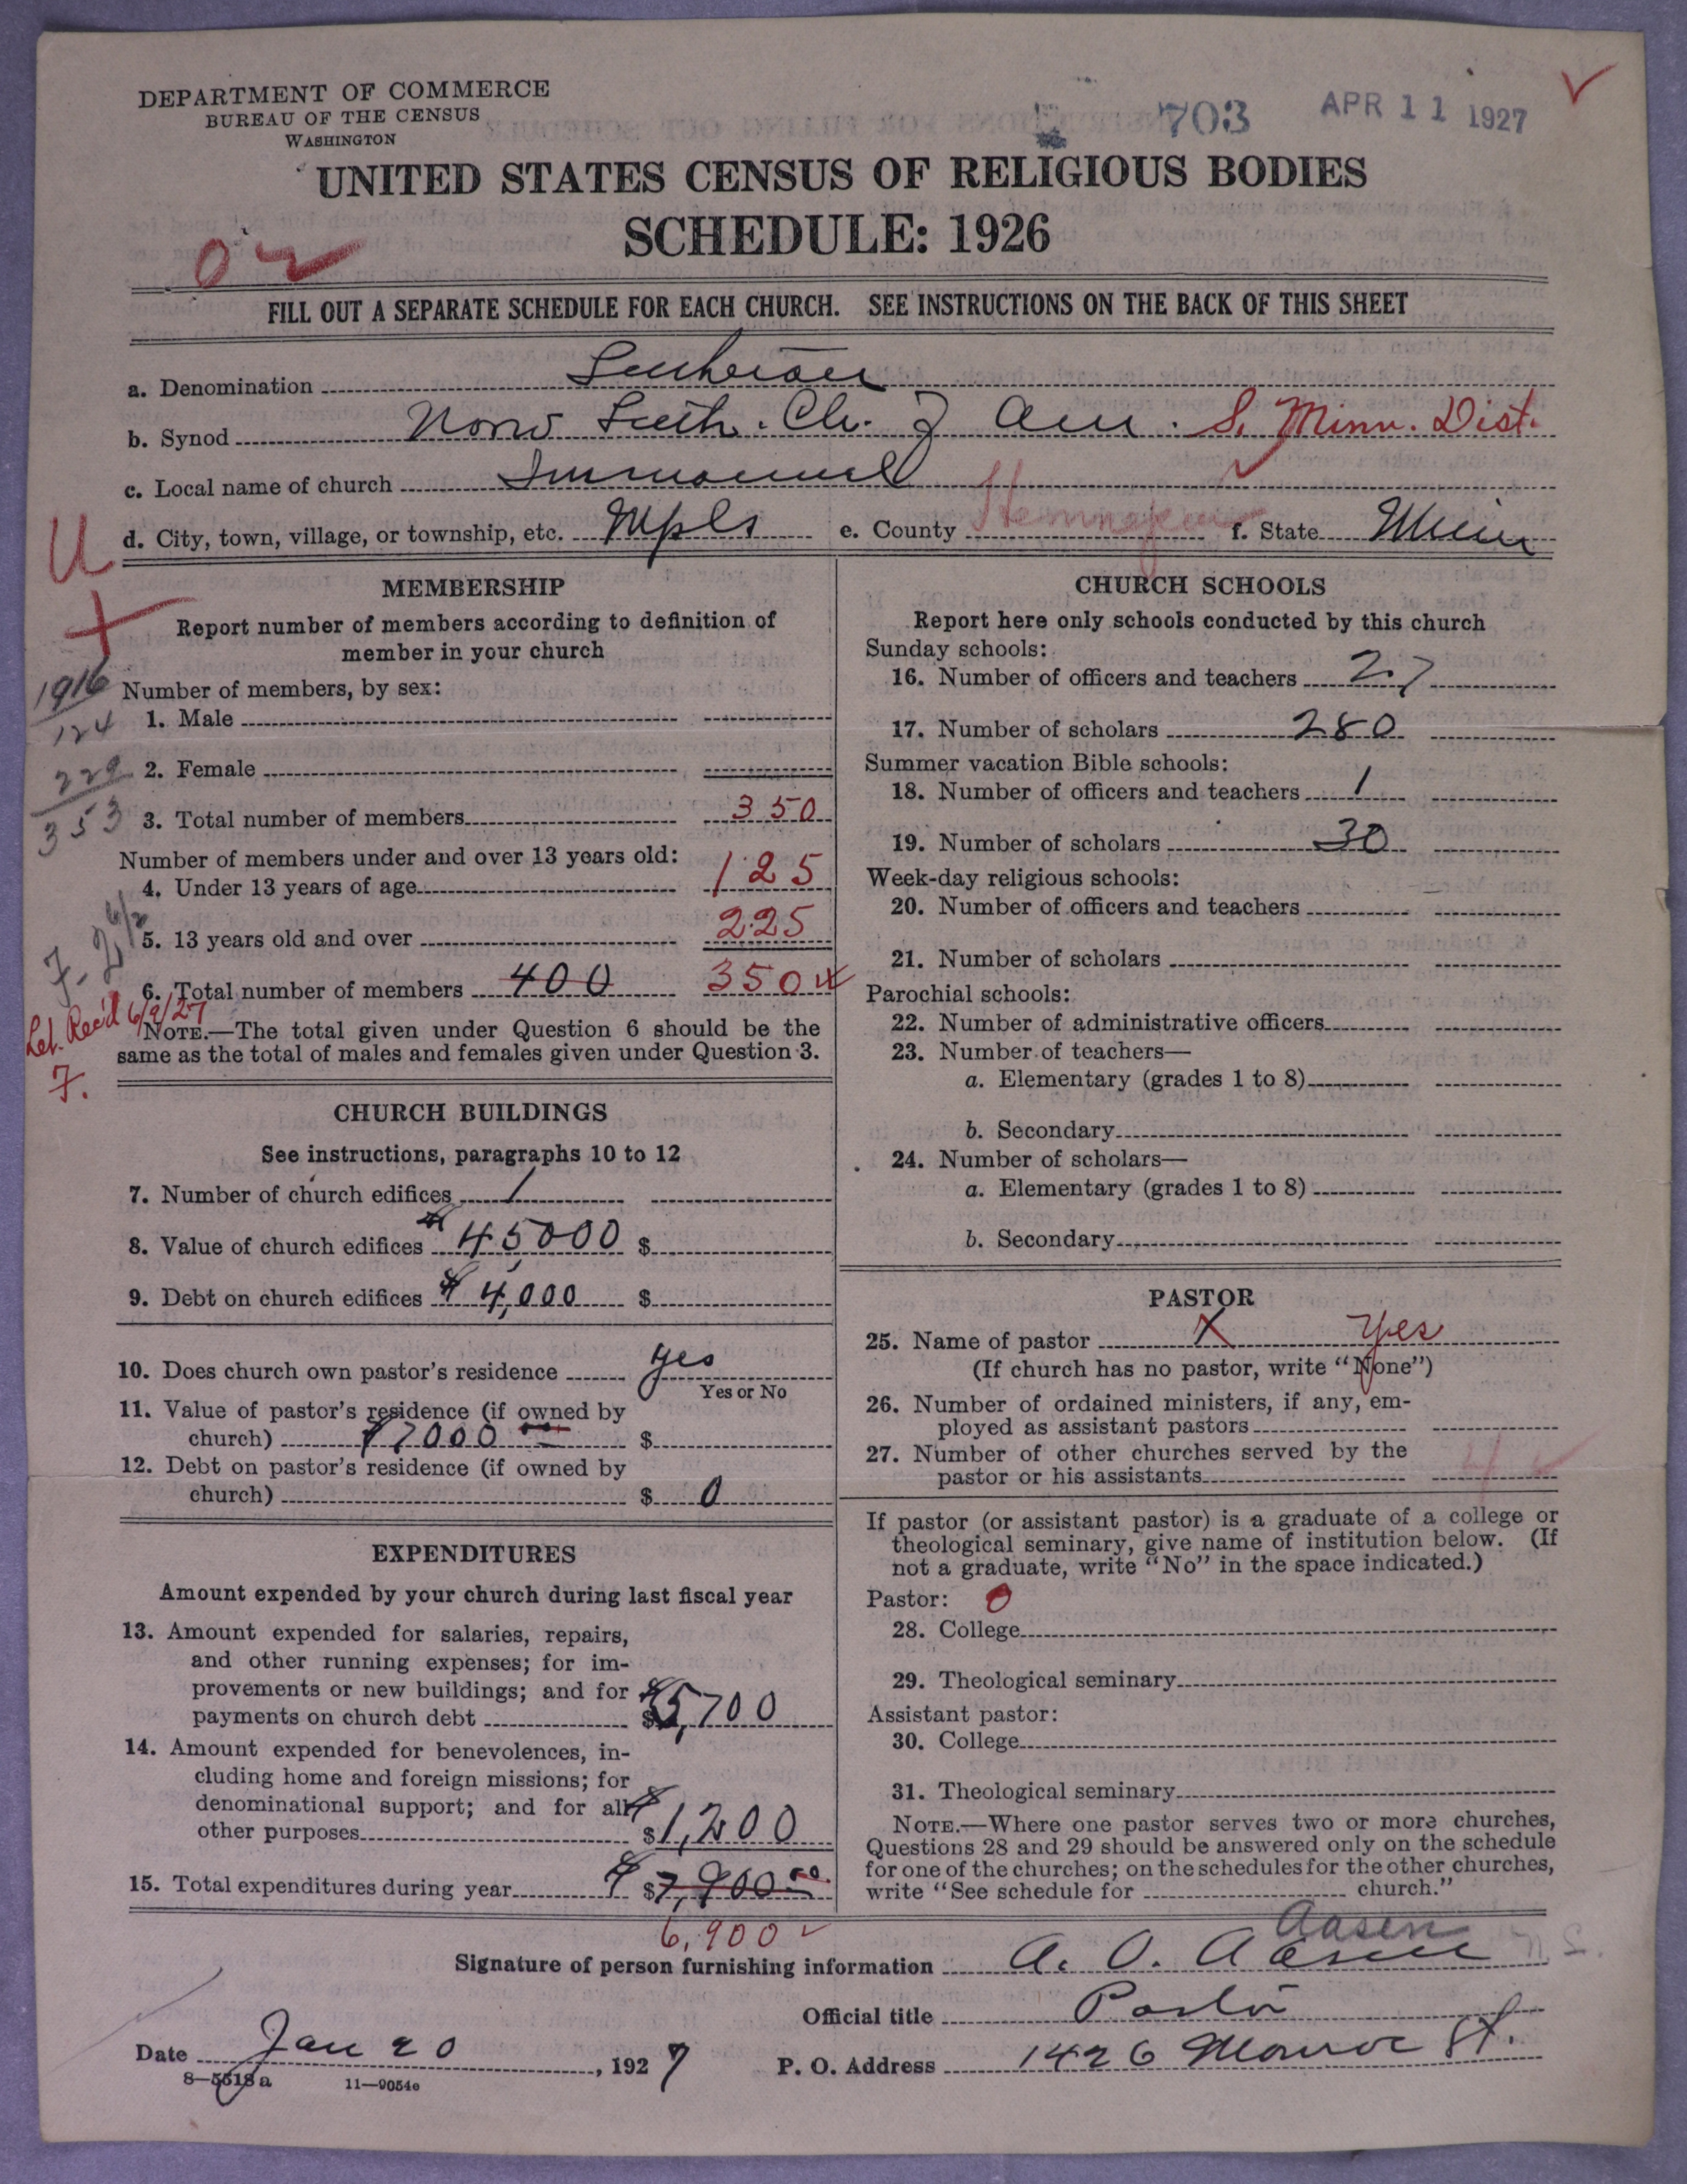 DEPARTMENT OF COMMERCE
BUREAU OF THE CENSUS
WASHINGTON
703
APR 11 1927
UNITED STATES CENSUS OF RELIGIOUS BODIES
SCHEDULE: 1926
FILL OUT A SEPARATE SCHEDULE FOR EACH CHURCH. SEE INSTRUCTIONS ON THE BACK OF THIS SHEET
a. Denomination Lutheran
b. Synod Norw Luth. Ch. of Am. S. Minn. Dist.
c. Local name of church Immanuel
d. City, town, village, or township, etc. Mpls e. County Hennepin f. State Minn
U
MEMBERSHIP
Report number of members according to definition of
member in your church
1916
Number of members, by sex:
1. Male
124
2. Female
229
3. Total number of members 350
353
Number of members under and over 13 years old:
4. Under 13 years of age 125
5. 13 years old and over 225
6. Total number of members 400 350
Let. Rec'd 6/9/27
7.
NOTE.—The total given under Question 6 should be the
same as the total of males and females given under Question 3.
CHURCH BUILDINGS
See instructions, paragraphs 10 to 12
7. Number of church edifices 1
8. Value of church edifices $45000 $
9. Debt on church edifices $4,000 $
10. Does church own pastor's residence yes
Yes or No
11. Value of pastor's residence (if owned by
church) $7000 $
12. Debt on pastor's residence (if owned by
church) $ 0
EXPENDITURES
Amount expended by your church during last fiscal year
13. Amount expended for salaries, repairs,
and other running expenses; for im-
provements or new buildings; and for
payments on church debt $5,700
14. Amount expended for benevolences, in-
cluding home and foreign missions; for
denominational support; and for all
other purposes $1,200
15. Total expenditures during year $7,900.00
6,900
CHURCH SCHOOLS
Report here only schools conducted by this church
Sunday schools:
16. Number of officers and teachers 27
17. Number of scholars 280
Summer vacation Bible schools:
18. Number of officers and teachers 1
19. Number of scholars 30
Week-day religious schools:
20. Number of officers and teachers
21. Number of scholars
Parochial schools:
22. Number of administrative officers
23. Number of teachers—
a. Elementary (grades 1 to 8)
b. Secondary
24. Number of scholars—
a. Elementary (grades 1 to 8)
b. Secondary
PASTOR
25. Name of pastor X Yes
(If church has no pastor, write "None")
26. Number of ordained ministers, if any, em-
ployed as assistant pastors
27. Number of other churches served by the
pastor or his assistants
If pastor (or assistant pastor) is a graduate of a college or
theological seminary, give name of institution below. (If
not a graduate, write "No" in the space indicated.)
Pastor: 0
28. College
29. Theological seminary
Assistant pastor:
30. College
31. Theological seminary
NOTE.—Where one pastor serves two or more churches,
Questions 28 and 29 should be answered only on the schedule
for one of the churches; on the schedules for the other churches,
write "See schedule for church."
Aasen
Signature of person furnishing information A. O. Aasen
Official title Pastor
Date Jan 20, 1927 P. O. Address 1426 Monroe St.
8—5518a 11—9054e